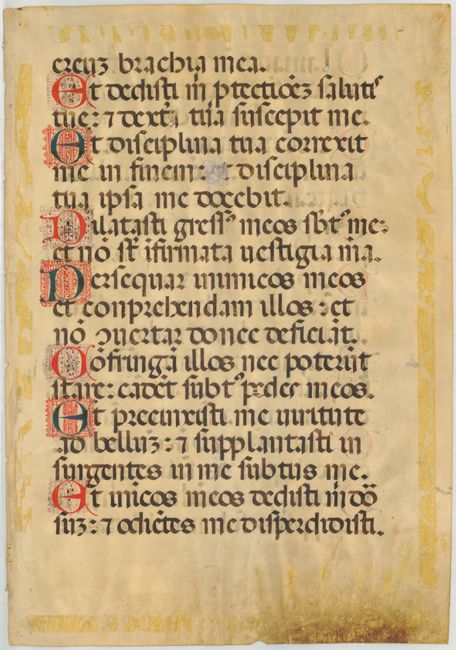 ereuz brachia mea.
Et dedisti m̄ ptectiōez salutis
tue: ⁊ dext̄a tua suscepit me.
Et disciplina tua correxit
me in finem: et disciplina
tua ipsa me docebit.
Dilatasti gress᾽ meos sbt᾽ me:
et nō st̄ ifirmata uestigia m̄a.
Persequar inimicos meos
et conprehendam illos: et
nō ɔuertar donec deficiāt.
Cōfringā illos nec poterūt
stare: cadēt subt᾽ pedes meos.
Et precinxisti me uirtute
ad belluz: ⁊ supplantasti in
surgentes in me subtus me.
Et imicos meos dedisti m̄ dō
suz: ⁊ odiētes me disperdidisti.